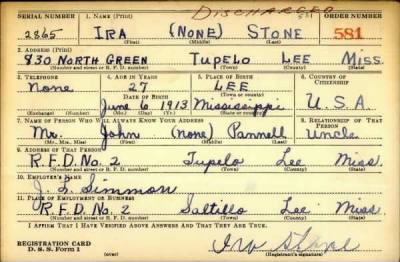 DISCHARGED
SERIAL NUMBER 1. NAME (Print) ORDER NUMBER
2865 IRA (NONE) STONE 581
(First) (Middle) (Last)
2. ADDRESS (Print)
830 NORTH GREEN TUPELO LEE MISS.
(Number and street or R. F. D. number) (Town) (County) (State)
3. TELEPHONE 4. AGE IN YEARS 5. PLACE OF BIRTH 6. COUNTRY OF CITIZENSHIP
None 27 LEE
DATE OF BIRTH (Town or county)
June 6 1913 Mississippi U.S.A.
(Exchange) (Number) (Mo.) (Day) (Yr.) (State or country)
7. NAME OF PERSON WHO WILL ALWAYS KNOW YOUR ADDRESS 8. RELATIONSHIP OF THAT PERSON
Mr. John (none) Pannell Uncle
(Mr., Mrs., Miss) (First) (Middle) (Last)
9. ADDRESS OF THAT PERSON
R.F.D. No. 2 Tupelo Lee Miss.
(Number and street or R. F. D. number) (Town) (County) (State)
10. EMPLOYER'S NAME
Simmon
11. PLACE OF EMPLOYMENT OR BUSINESS
R.F.D. No. 2 Saltillo Lee Miss
(Number and street or R. F. D. number) (Town) (County) (State)
I AFFIRM THAT I HAVE VERIFIED ABOVE ANSWERS AND THAT THEY ARE TRUE.
REGISTRATION CARD Ira Stone
D. S. S. Form 1 (Registrant's signature)